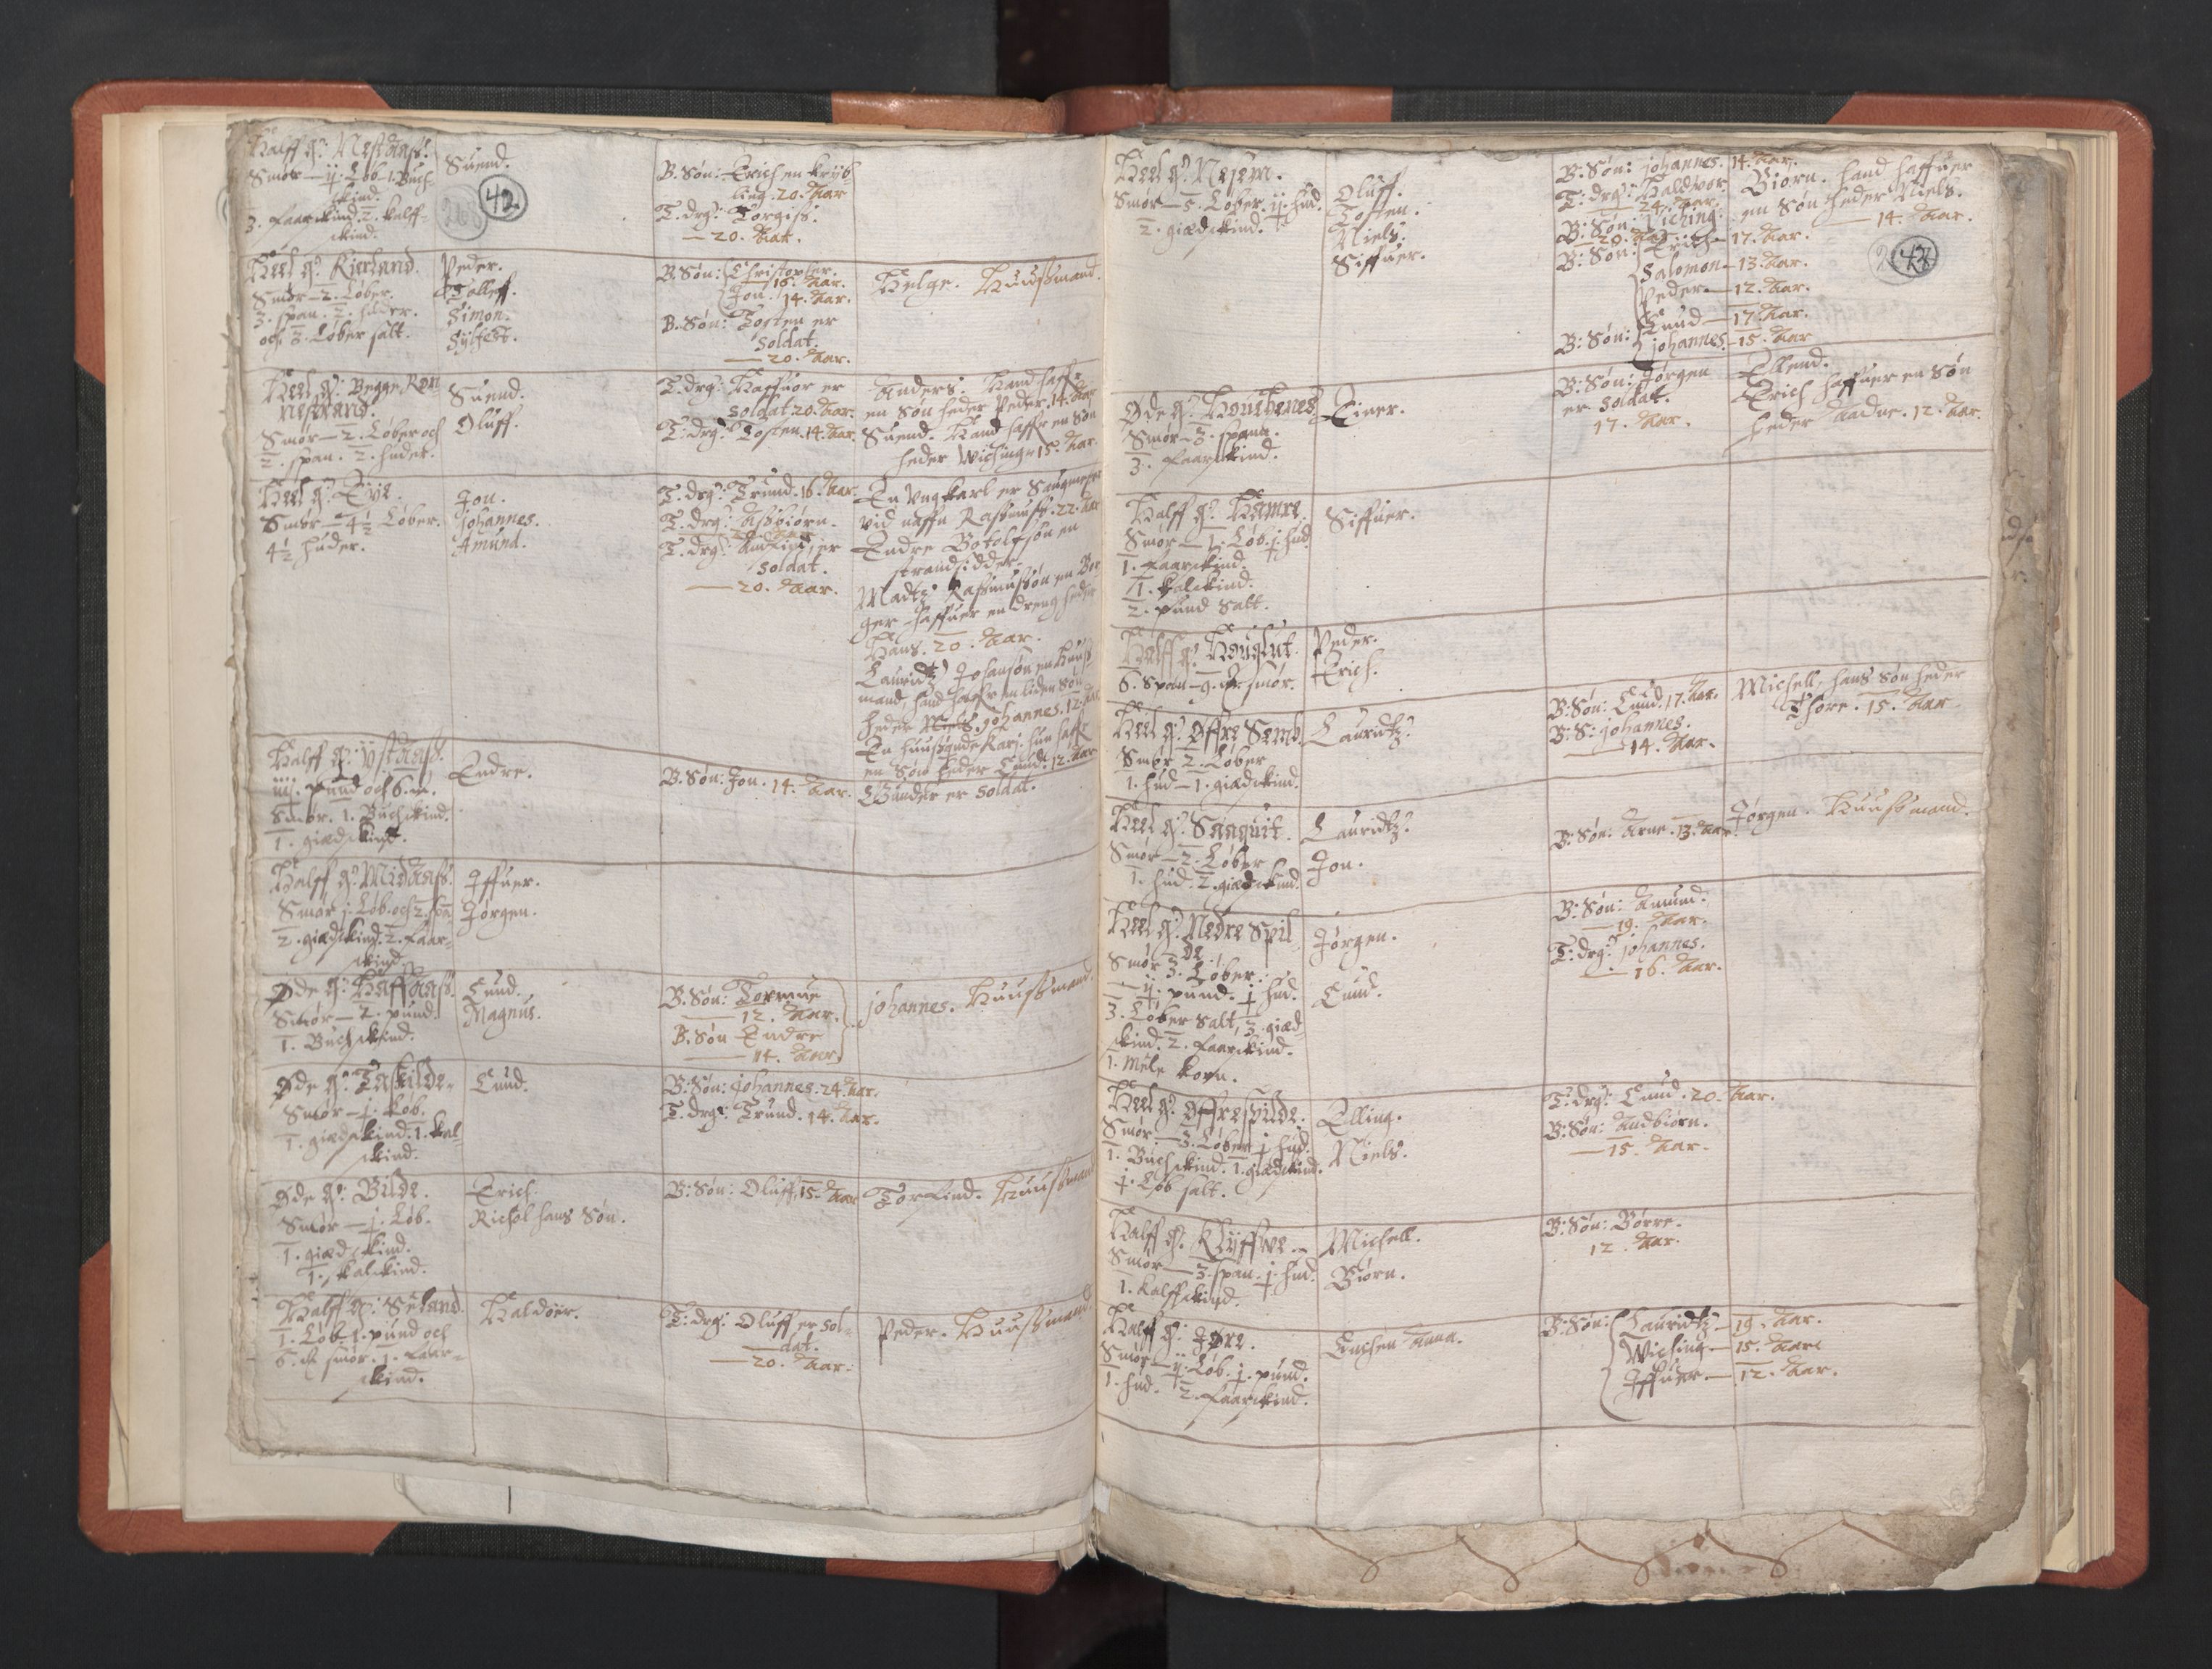 Halff g: Nestaas.
Smør — ij. Løb. 1. Buch-
skind.
3. Faarskind. 2. kalff-
skind.
Suend.
42
B. Søn: Erich en Kryb-
ling. 20. Aar
T. drg: Torgiss.
— 20. Aar.
Heel g: Kierland.
Smør — 2. Løber.
3. span. 2. huder.
och 3. Løber salt.
Peder.
Tolleff.
Simon.
Sylfest.
B. Søn: Christopher.
16. Aar.
Jon. 14. Aar.
B. Søn: Tosten er
Soldat.
— 20. Aar.
Helge. Huussmand.
Heel g: Begge Røn
nestrand.
Smør — 2. Løber och
2. span. 2. huder.
Suend.
Oluff.
T. drg: Haffuor er
Soldat 20. Aar.
T: drg: Tosten. 14. Aar.
Anders. Hand haffr
en Søn heder Peder. 14. Aar
Suend. Hand haffr en Søn
heder Wiching. 15. Aar.
Heel g: Eye.
Smør — 4½ Løber.
4½ huder.
Jon.
Johannes.
Amund.
T. drg: Trund. 16. Aar.
T. drg: Assbiørn.
T. drg: er
Soldat.
— 20. Aar.
En Ungkarl er Saugmester
vid naffn Rassmuss. 22. Aar
Endre Botolfsøn en
strandsidder.
Madtz Rassmussøn en Bor
ger haffuer en dreng heder
Hans. 20. Aar.
Lauridtz Johansøn en Huuss
mand, hand haffr en liden Søn
heder Niels. Johannes. 12. Aar
En huusquinde Kari. hun haffr
en Søn heder Cnud. 12. Aar
Gunder er Soldat.
Halff g: Ystaas.
iij. pund och 6. m.
Smør. 1. Buchskind.
1. giedskind.
Endre.
B. Søn: Jon. 14. Aar.
Halff g: Midaas.
Smør j. Løb. och 2. spa
2. giedskind. 2. Faar-
skind.
Iffuer.
Jørgen.
Øde g: Haffaas.
Smør — 2. pund.
1. Buchskind.
Cnud.
Magnus.
B. Søn: Tormue
— 12. Aar.
B. Søn Endre
— 14. Aar.
Johannes. Huussmand.
Øde g: Taskilde.
Smør — j. Løb.
1. giedskind. 1. kal-
skind.
Cnud.
B: Søn: Johannes. 24. Aar.
T. drg: Trund. 14. Aar.
Øde g: Bilde.
Smør — j. Løb.
1. giedskind.
1. kalskind.
Erich.
Richol hans Søn.
B: Søn: Oluff. 15. Aar
Torfind. Huussmand
Halff g: Søland.
1. Løb j. pund och
6. m smør. j. Faar-
skind.
Haldoer.
T: drg: Oluff er Sol-
dat.
— 20. Aar.
Peder. Huussmand.
Heel g: Nejem.
Smør — 5. Løber. ij. hud.
2. giedskind.
Oluff.
Tosten.
Niels.
Siffuer.
B: Søn: Johannes. 14. Aar.
T: drg: Haldvor.
24. Aar.
B: Søn: Wiching.
— 20. Aar.
B: Søn: Erich — 17. Aar.
Salomon — 13. Aar.
Peder — 12. Aar.
B: Søn: Cnud — 17. Aar.
Johannes. — 15. Aar
Biørn. hand haffuer
en Søn heder Niels.
— 14. Aar.
43
Øde g: Houchenes
Smør — 3. spann.
3. Faarskind.
Einer.
B: Søn: Jørgen
er Soldat.
17. Aar.
Ellend.
Erich haffuer en Søn
heder Aadne. 12. Aar.
Halff g: Hamre.
Smør — 1. Løb. j. hud
1. Faarskind.
1. kalskind.
2. pund Salt.
Siffuer.
Halff g: Houglut.
6. Span — 9. m smør.
Peder.
Erich.
Heel g: Øffre Semb.
Smør 2. Løber
1. hud — 1. giedskind.
Lauridtz.
B: Søn: Cnud. 17. Aar.
B: S: Johannes.
— 14. Aar.
Michell, hans Søn heder
Thore. 15. Aar
Heel g: Sanguit.
Smør — 2. Løber
1. hud. 2. giedskind.
Lauridtz.
Jon.
B: Søn: Arne. 13. Aar
Jørgen. Huussmand.
Heel g: Nedre Spil
de.
Smør 3. Løber.
— ij. pund. j. hud.
3. Løber Salt, 3. gied-
skind. 2. Faarskind.
1. Mele korn.
Jørgen.
Cnud.
B: Søn: Amund.
— 19. Aar.
T: drg: Johannes.
— 16. Aar.
Heel g: Øffrespilde.
Smør. — 3. Løber j. hud.
1. Buchskind. 1. giedskind.
j. Løb salt.
Elling.
Niels.
T: drg: Cnud. 20. Aar.
B: Søn: Andbiørn.
— 15. Aar.
Halff g: Klyffwe.
Smør — 3. span. j. hud.
1. Kalffskind.
Michell.
Biørn.
B: Søn: Børre.
12. Aar.
Halff g: Jøre.
Smør — ij. Løb. j. pund.
1. hud. 2. Faarskind.
Enchen Anna.
B: Søn: Lauridtz — 19. Aar.
Wiching — 15. Aar
Iffuer — 12. Aar.